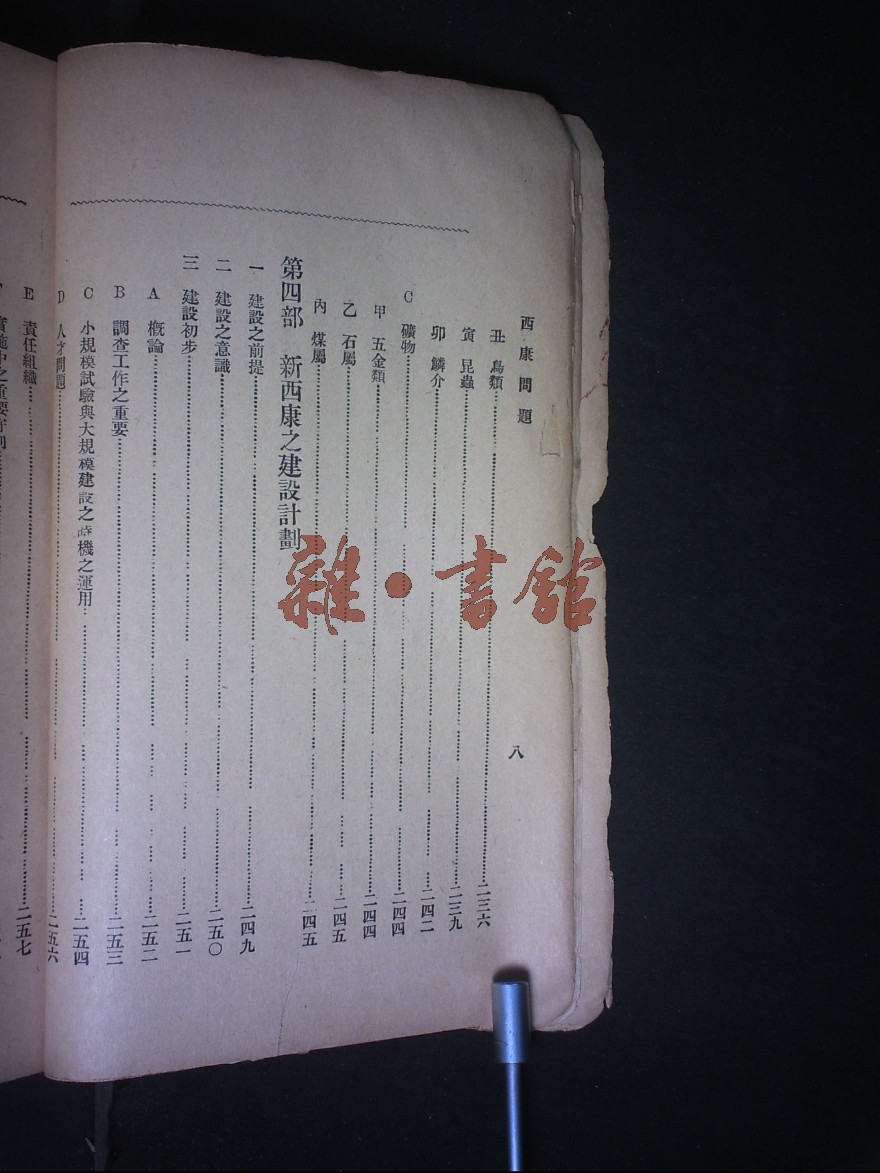 西康問題
八
丑 鳥類……二三六
寅 昆蟲……二三九
卯 鱗介……二四二
C 礦物……二四四
甲 五金類……二四四
乙 石屬……二四五
丙 煤屬……二四五
第四部 新西康之建設計劃
一 建設之前提……二四九
二 建設之意識……二五〇
三 建設初步……二五一
A 概論……二五二
B 調查工作之重要……二五三
C 小規模試驗與大規模建設之時機之運用……二五四
D 人才問題……二五六
E 責任組織……二五七
實施中之重要
雜·書館